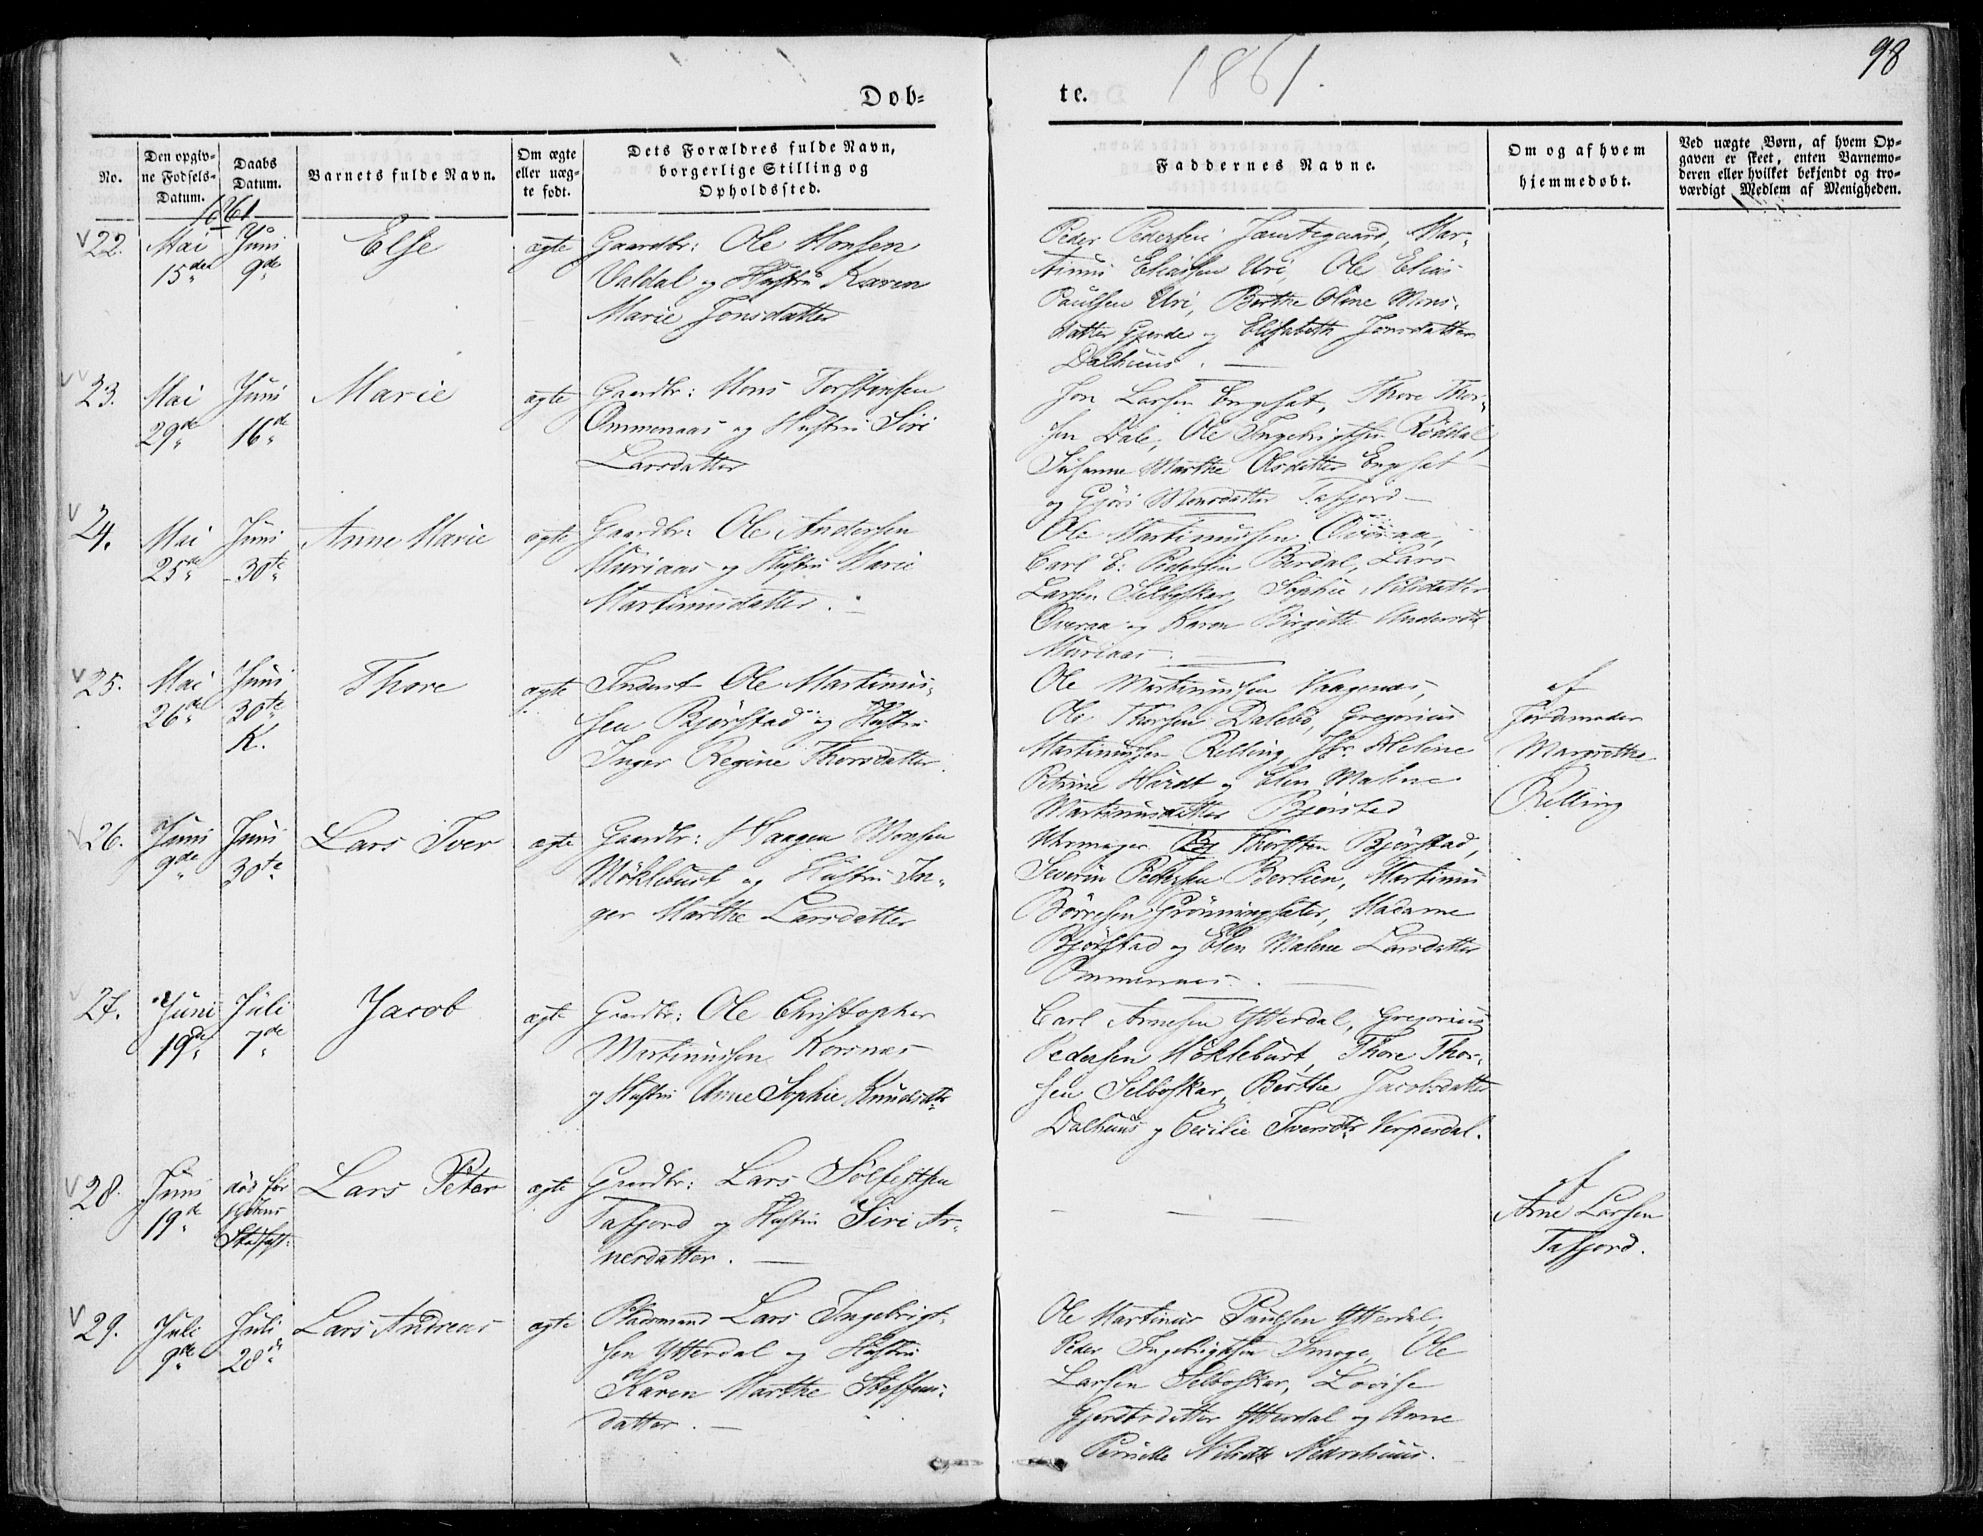 98
Døb-
te.
1861.
No.
Den opgiv-
ne Fødsels-
Datum.
Daabs
Datum.
Barnets fulde Navn.
Om ægte
eller uæg-
te født.
Dets Forældres fulde Navn,
borgerlige Stilling og
Opholdssted.
Faddernes Navne.
Om og af hvem
hjemmedøbt.
Ved uægte Børn, af hvem Op-
gaven er skeet, enten Barnemo-
deren eller hvilket bekjendt og tro-
værdigt Medlem af Menigheden.
1861
22.
Mai
15den
Juni
9de
Else
ægte
Gaardbr: Ole Monsen
Valdal og Hustru Karen
Marie Jonsdatter
Peder Pedersen Mar-
tinus Eliassen Uri, Ole Elias
Paulsen Uri, Berthe Oline Mons-
datter Gjerde og Elisabeth Jonsdatter
Dalhuus. —
23.
Mai
29de
Juni
16de
Marie
ægte
Gaardbr: Mons Torstensen
Ommenaas og Hustru Siri
Larsdatter
Jon Larsen Engeset, Thore Thor-
sen Dale, Ole Ingebrigtsen Røddal,
Susanne Marthe Olsdatter Engeset
og Gjøri Monsdatter Tafjord —
24.
Mai
25de
Juni
30te
Anne Marie
ægte
Gaardbr: Ole Andersen
Muriaas og Hustru Marie
Martinusdatter. —
Ole Martinussen Overaa,
Carl E. Pedersen Berdal, Lars
Larsen Selboskar, Sophie Nilsdatter
Overaa og Karen Birgitte Andersdtr
Muriaas. —
25.
Mai
26de
Juni
30te
K.
Thore
ægte
Inderst Ole Martinus-
sen Bjørstad og Hustru
Inger Regine Thorsdatter.
Ole Martinussen Vaagenæs,
Ole Thorsen Dalebø, Gregorius
Martinussen Relling, Jfr. Heline
Petrine Hardt og Elen Malene
Martinusdatter Bjørstad
af
Jordemoder
Margrethe
Relling
26.
Juni
9de
Juni
30te
Lars Iver
ægte
Gaardbr: Haagen Monsen
Møklebust og Hustru In-
ger Marthe Larsdatter
Uhrmager Thorsten Bjørstad,
Severin Pettersen Berlien, Martinus
Børresen Grønningsæter, Madame
Bjørstad og Elen Malene Larsdatter
Ommenaas. —
27.
Juni
19de
Juli
7de
Jacob
ægte
Gaardbr: Ole Christopher
Martinussen Korsnæs
og Hustru Anne Sophie Knudsdtr
Carl Arnesen Ytterdal, Gregorius
Pedersen Møklebust, Thore Thor-
sen Selboskar, Berthe Jacobsdatter
Dalhuus og Cecilie Iversdtr Verpesdal.
28.
Juni
19de
død før
Stadfæst:
Lars Peter
ægte
Gaardbr: Lars Solfestsen
Tafjord og Hustru Siri Ar-
nesdatter. —
— — —
af
Arne Larsen
Tafjord.
29.
Juli
9de
Juli
28de
Lars Andreas
ægte
Pladsmand Lars Ingebrigt-
sen Ytterdal og Hustru
Karen Marthe Steffens-
datter. —
Ole Martinus Paulsen Ytterdal,
Peder Ingebrigtsen Smoge, Ole
Larsen Selboskar, Lovise
Gjertsdatter Ytterdal og Anne
Pernille Nilsdtr